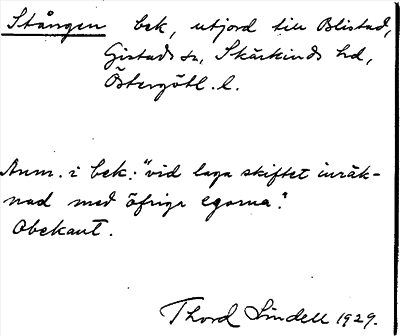 Stången bek, utjord till Blistad,
Gistads sn, Skärkinds hd,
Östergötl. l.
Anm. i bek.: "vid laga skiftet inräk-
nad med öfriga egorna."
Obekant.
Thord Lindell 1929.